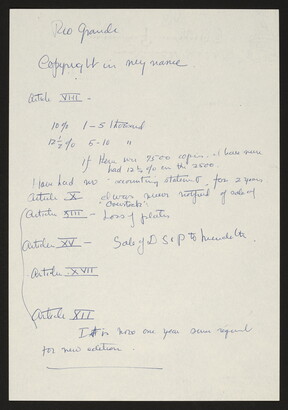 Rio Grande
Copyright in my name.
Article VIII -
10% 1 - 5 thousand
12½% 5-10 "
if there was 9500 copies - I have never
had 12½% on the 2500.
I have had no - accounting statement, for 2 years
Article X - I was never notified of sale of
"Overstocks".
Article XIII - Loss of plates
Article XV - Sale of D S & P to
Article XVII
Article XII
It is now one year since request
for new edition.